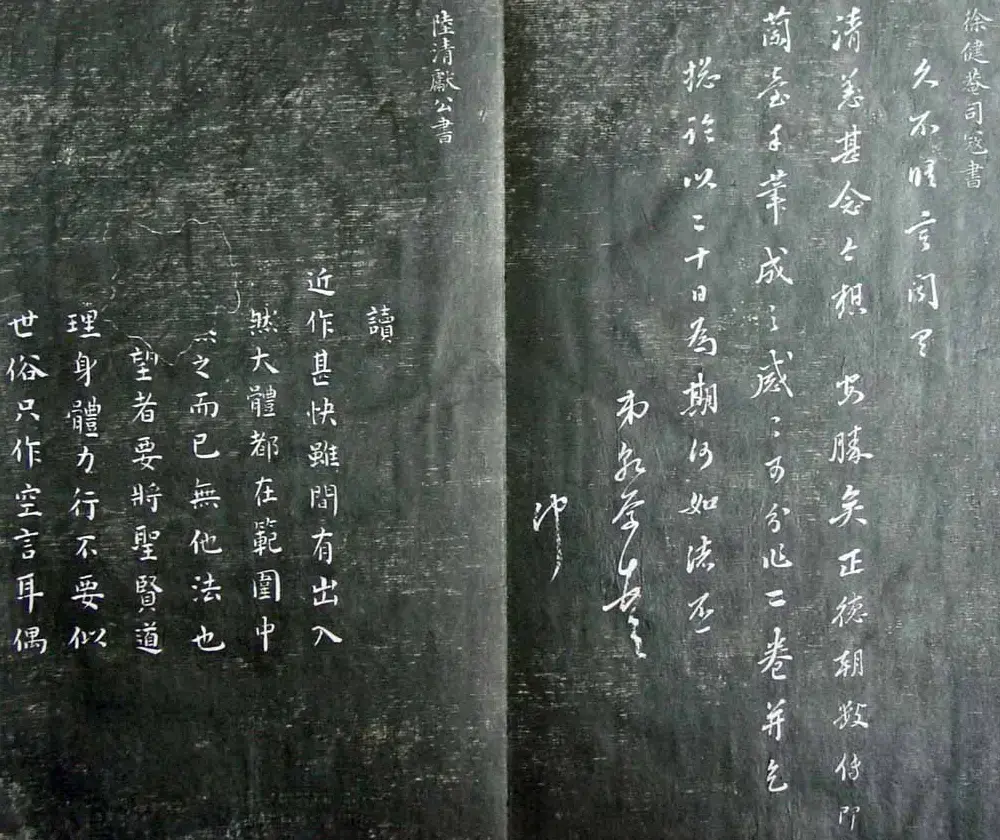 徐健菴司寇書
久不晤言聞
清恙甚念今想 安勝矣正德朝數傳即
蘭臺手筆成之感〻可分作二卷并乞
總論以二十日為期何如諸不
弟乾學頓
沖
陸清獻公書
讀
近作甚快雖間有出入
然大體都在範圍中
之而已無他法也
望者要將聖賢道
理身體力行不要似
世俗只作空言耳偶